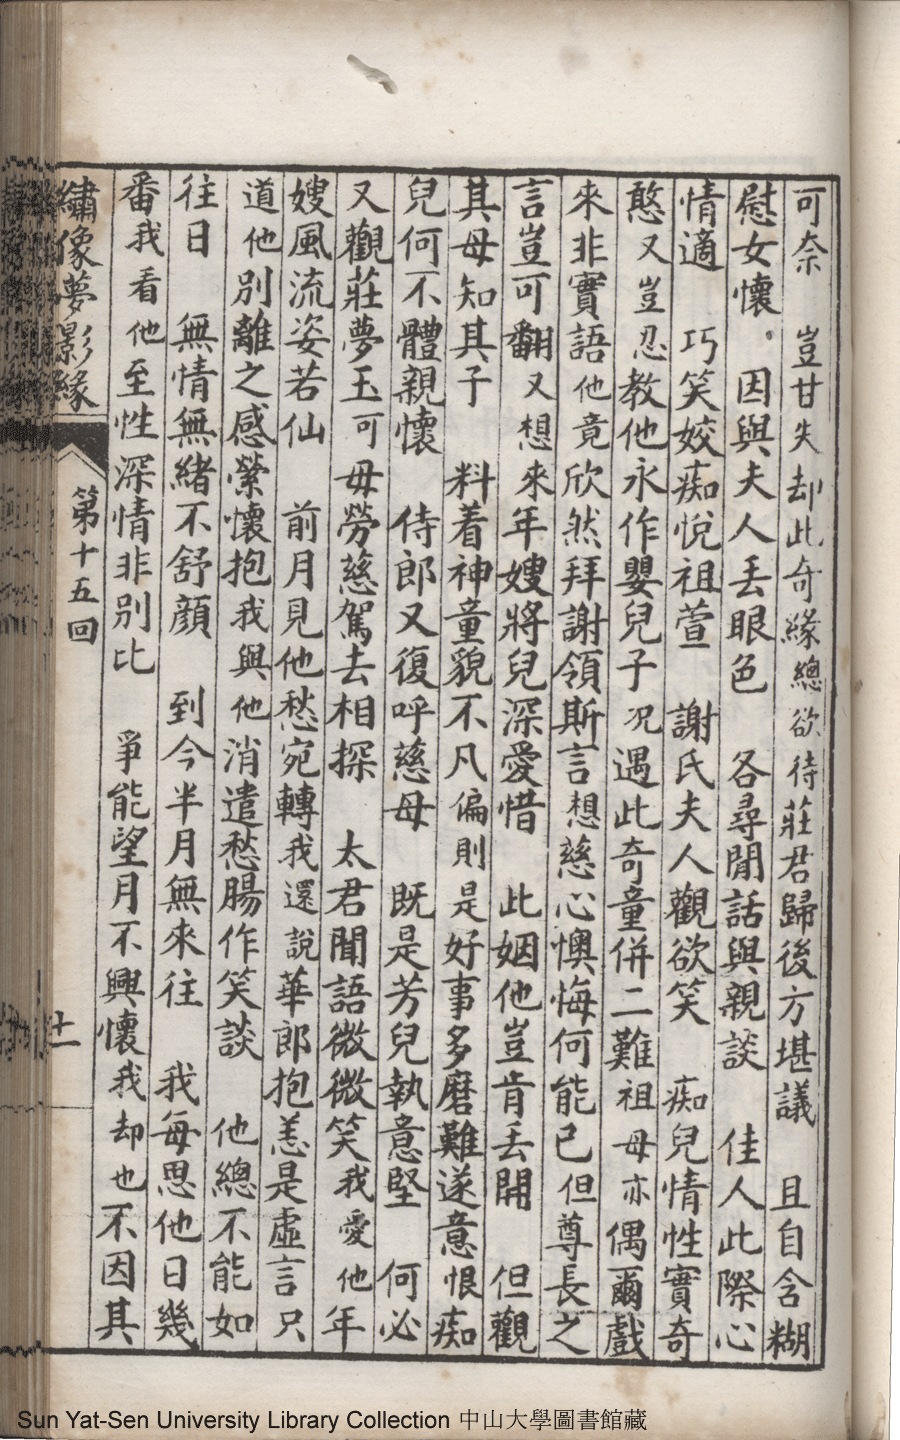 可奈　豈甘失却此奇緣總欲待莊君歸後方堪議　且自含糊
慰女懷。因與夫人丟眼色　各尋閒話與親談　佳人此際心
情適　巧笑姣痴悅祖萱　謝氏夫人觀欲笑　痴兒情性實奇
憨又豈忍教他永作嬰兒子况遇此奇童併二難祖母亦偶爾戲
來非實語他竟欣然拜謝領斯言想慈心懊悔何能已但尊長之
言豈可翻又想來年嫂將兒深愛惜　此姻他豈肯丟開　但觀
其母知其子　料着神童貌不凡偏則是好事多磨難遂意恨痴
兒何不體親懷　侍郎又復呼慈母　既是芳兒執意堅　何必
又觀莊夢玉可毋勞慈駕去相探　太君聞語微微笑我愛他年
嫂風流姿若仙　前月見他愁宛轉我還說華郎抱恙是虛言只
道他別離之感縈懷抱我與他消遣愁腸作笑談　他總不能如
往日　無情無緒不舒顏　到今半月無來往　我每思他日幾
番我看他至性深情非別比　爭能望月不興懷我却也不因其
繡像夢影緣　第十五回　十一
Sun Yat-Sen University Library Collection 中山大學圖書館藏